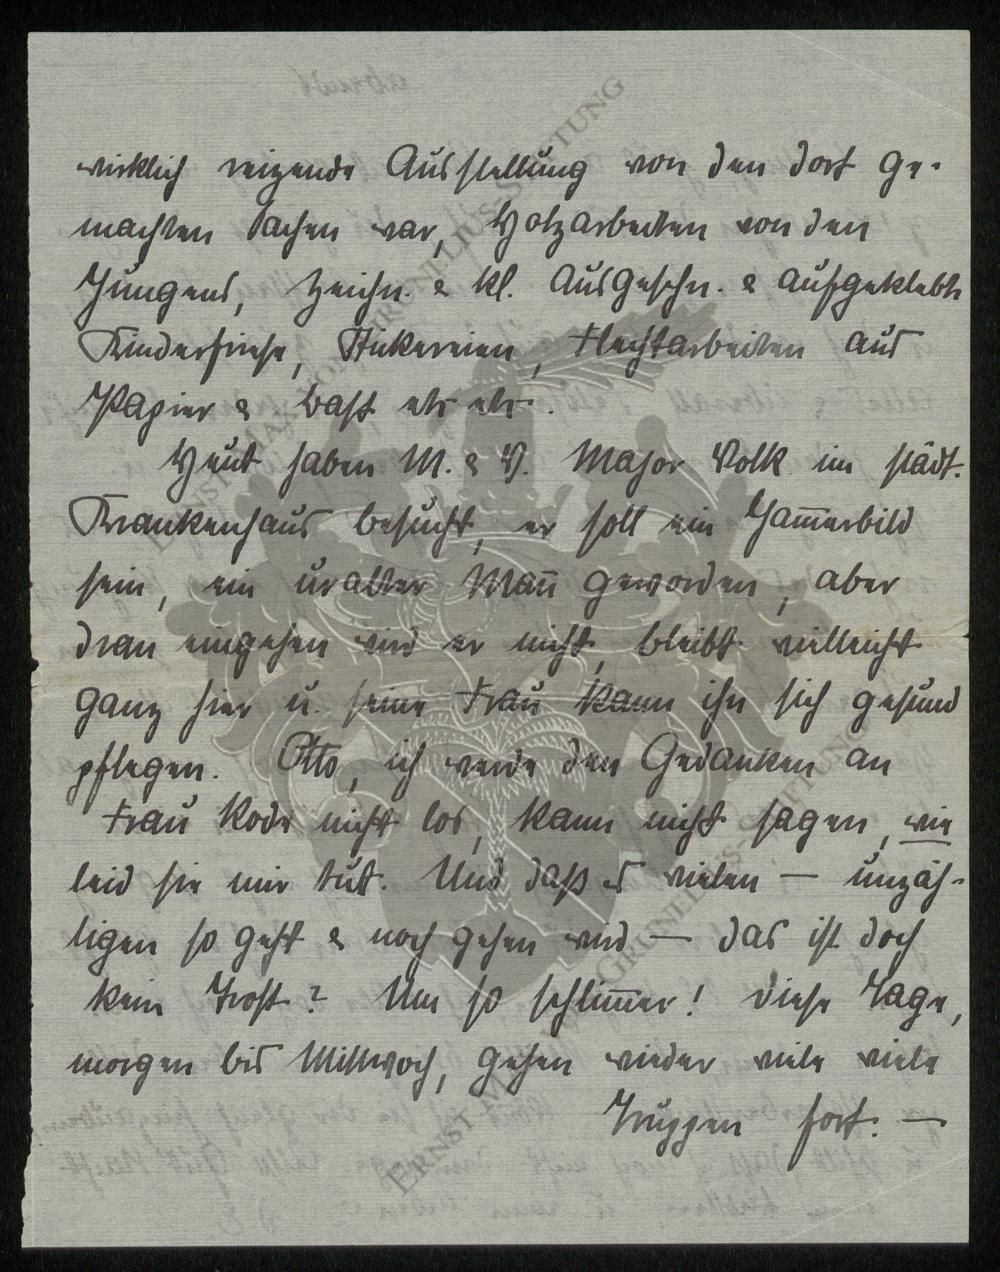 wirklich reizende Ausstellung von den dort ge-
machten Sachen war, Holzarbeiten von den
Jungens, Zeichn. & kl. Ausgeschn. & aufgeklebte
Kinderfriese, Stickereien, Flechtarbeiten aus
Papier & Bast etc etc.
Heut haben M. & V. Major Volk im städt.
Krankenhaus besucht, er soll ein Jam̅erbild
sein, ein uralter Man̅ geworden, aber
dran eingehen wird er nicht, bleibt vielleicht
ganz hier u. seine Frau kann ihn sich gesund
pflegen. Otto, ich werde den Gedanken an
Frau Rode nicht los, kann nicht sagen, wie
leid sie mir tut. Und daß es vielen — unzäh-
ligen so geht & noch gehen wird — das ist doch
kein Trost? Um so schlim̅er! Diese Tage,
morgen bis Mittwoch, gehen wieder viele viele
Truppen fort. —